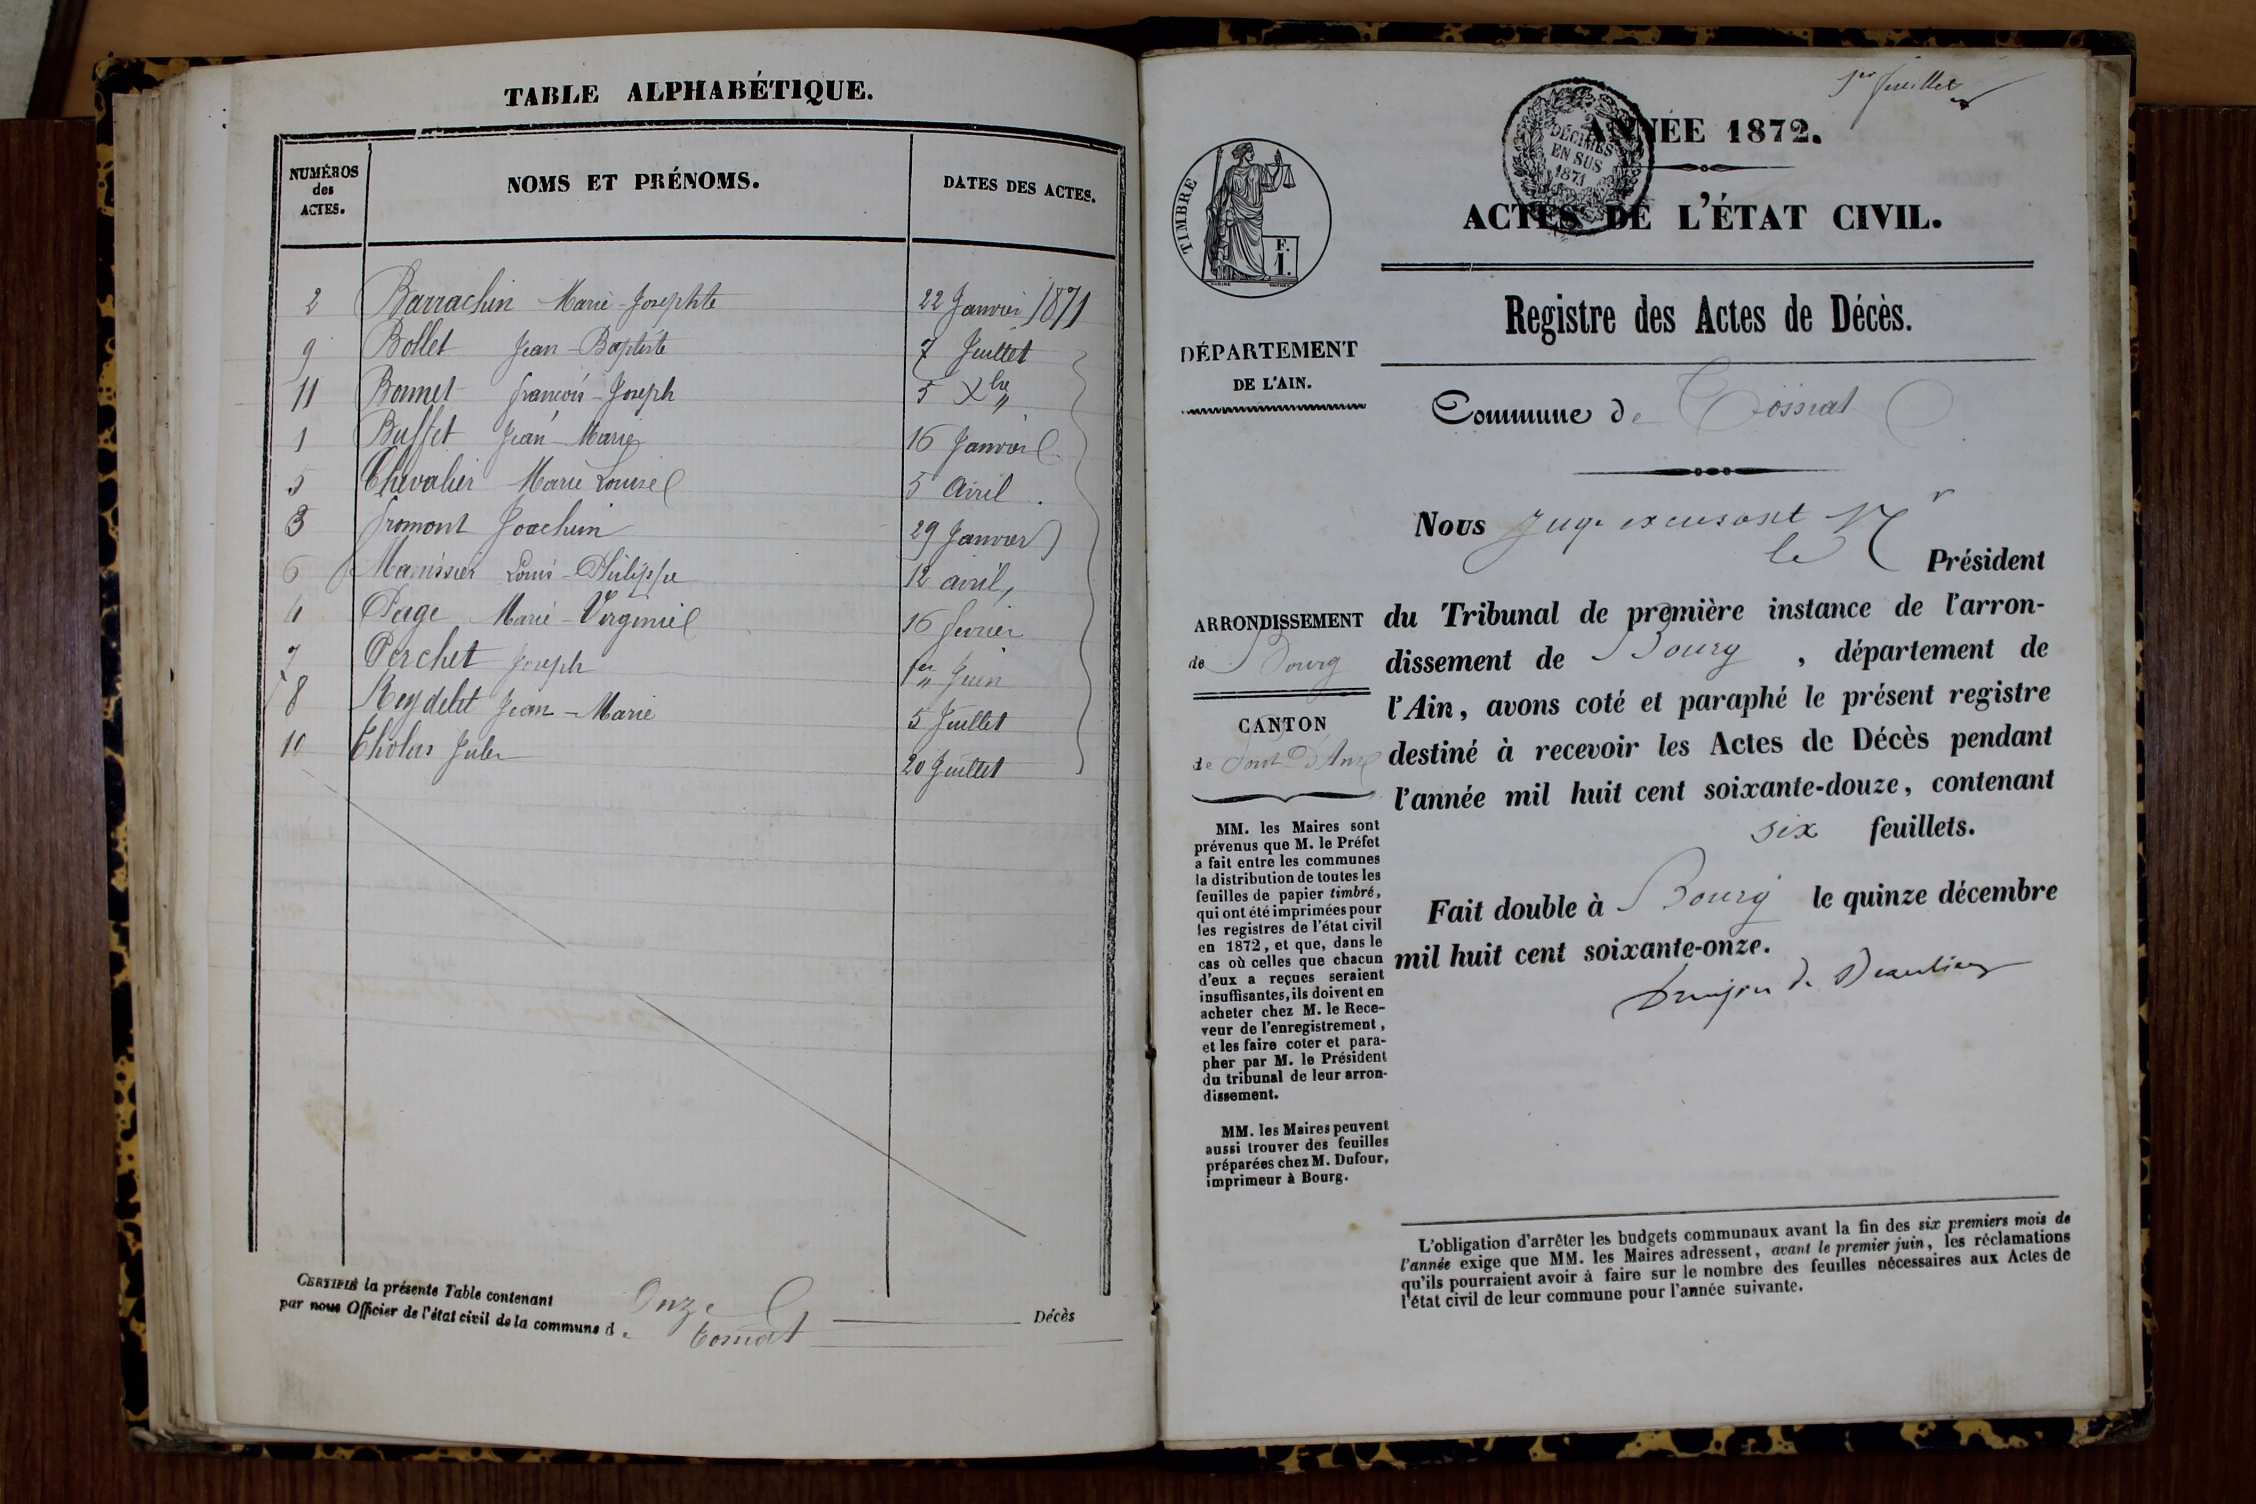 TABLE ALPHABÉTIQUE.
NUMÉROS des ACTES. NOMS ET PRÉNOMS. DATES DES ACTES.
2 Barrachin Marie-Josephte 22 Janvier 1871
9 Bollet Jean-Baptiste 7 Juillet
11 Bonnet françois-Joseph 5 Xbre "
1 Buffet Jean-Marie 16 Janvier
5 Chevalier Marie Louise 5 Avril
3 fromont Joachim 29 Janvier
6 Manissier Louis-Philippe 12 avril,
4 Page Marie-Virginie 16 fevrier
7 Perchet Joseph 1er Juin
8 Reydelet Jean-Marie 5 Juillet
10 Tholas Jules 20 Juillet
CERTIFIÉ la présente Table contenant Onze Décès
par nous Officier de l'état civil de la commune de Tossiat
1er feuillet
ANNÉE 1872.
2 DÉCIMES EN SUS 1871
ACTES DE L'ÉTAT CIVIL.
TIMBRE
F.
1.
Registre des Actes de Décès.
DÉPARTEMENT
DE L'AIN.
Commune de Tossiat
Nous Juge excusant Mr
le Président
ARRONDISSEMENT
de Bourg
CANTON
de Pont D'Ain
du Tribunal de première instance de l'arron-
dissement de Bourg, département de
l'Ain, avons coté et paraphé le présent registre
destiné à recevoir les Actes de Décès pendant
l'année mil huit cent soixante-douze, contenant
six feuillets.
Fait double à Bourg le quinze décembre
mil huit cent soixante-onze.
MM. les Maires sont
prévenus que M. le Préfet
a fait entre les communes
la distribution de toutes les
feuilles de papier timbré,
qui ont été imprimées pour
les registres de l'état civil
en 1872, et que, dans le
cas où celles que chacun
d'eux a reçues seraient
insuffisantes, ils doivent en
acheter chez M. le Rece-
veur de l'enregistrement,
et les faire coter et para-
pher par M. le Président
du tribunal de leur arron-
dissement.
MM. les Maires peuvent
aussi trouver des feuilles
préparées chez M. Dufour,
imprimeur à Bourg.
L'obligation d'arrêter les budgets communaux avant la fin des six premiers mois de
l'année exige que MM. les Maires adressent, avant le premier juin, les réclamations
qu'ils pourraient avoir à faire sur le nombre des feuilles nécessaires aux Actes de
l'état civil de leur commune pour l'année suivante.